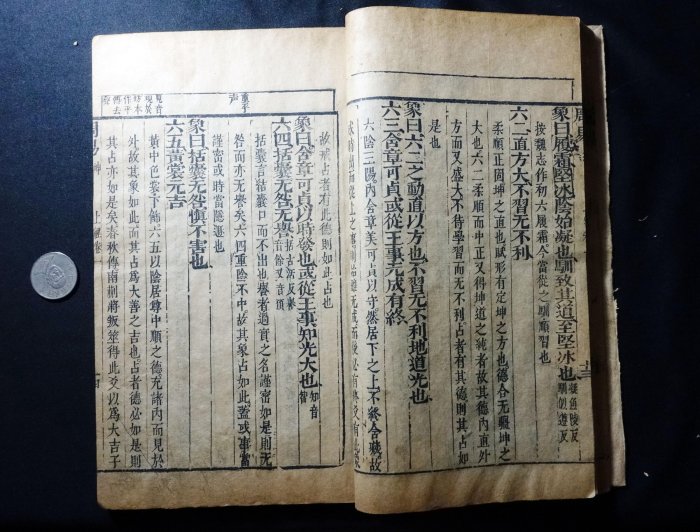 象曰履霜堅冰陰始凝也馴致其道至堅冰也凝魚陵反馴似遵反
按魏志作初六履霜今當從之馴順習也
六二直方大不習无不利
柔順正固坤之直也賦形有定坤之方也德合无疆坤之
大也六二柔順而中正又得坤道之純者故其德內直外
方而又盛大不待學習而无不利占者有其德則其占如
是也
象曰六二之動直以方也不習无不利地道光也
六三含章可貞或從王事无成有終
六陰三陽內含章美可貞以守然居下之上不終含藏故
故戒占者有此德則如此占也
象曰含章可貞以時發也或從王事知光大也知音智
六四括囊无咎无譽括古活反譽音餘又音預
括囊言結囊口而不出也譽者過實之名謹密如是則无
咎而亦无譽矣六四重陰不中故其象占如此蓋或事當
謹密或時當隱遯也
象曰括囊无咎慎不害也
六五黃裳元吉
黃中色裳下飾六五以陰居尊中順之德充諸內而見於
外故其象如此而其占為大善之吉也占者德必如是則
其占亦如是矣春秋傳南蒯將叛筮得此爻以為大吉子
重平聲